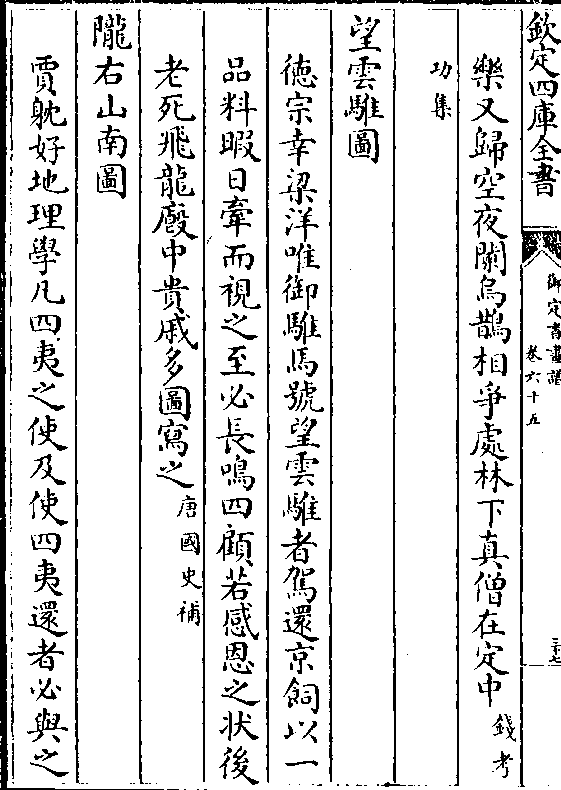 欽定四庫全書
御定書畫譜
卷六十五
三十七
樂又歸空夜闌烏鵲相爭處林下真僧在定中錢考
功集
望雲騅圖
德宗幸梁洋唯御騅馬號望雲騅者駕還京飼以一
品料暇日牽而視之至必長鳴四顧若感恩之狀後
老死飛龍廏中貴戚多圖寫之唐國史補
隴右山南圖
賈躭好地理學凡四夷之使及使四夷還者必與之